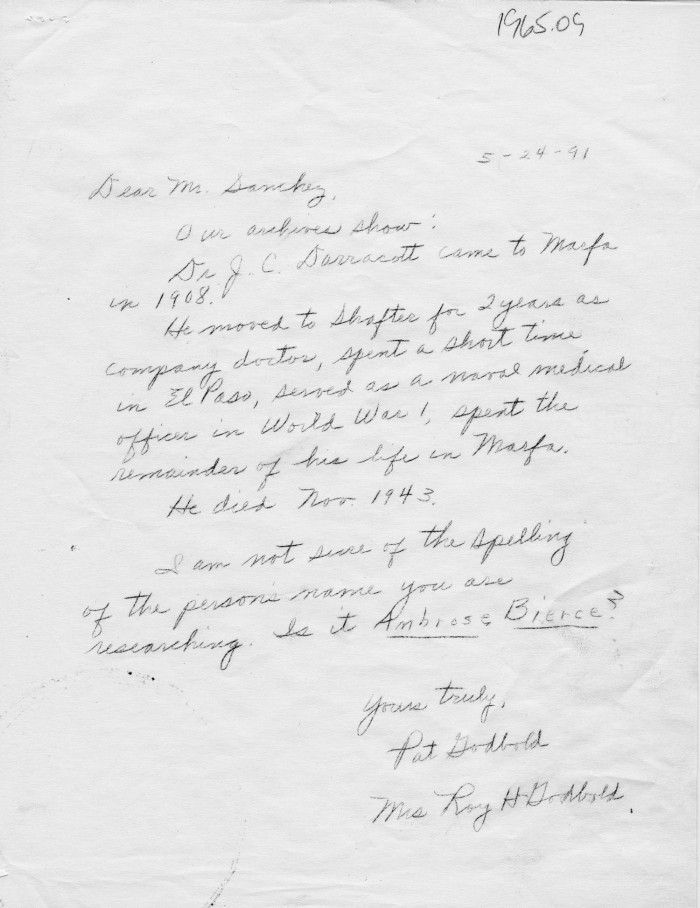 1965.09
5-24-91
Dear Mr. Sanchez,
Our archives show:
Dr J. C. Darracott came to Marfa
in 1908.
He moved to Shafter for 2 years as
company doctor, spent a short time
in El Paso, served as a naval medical
officer in World War 1, spent the
remainder of his life in Marfa.
He died Nov. 1943.
I am not sure of the spelling
of the persons name you are
researching. Is it Ambrose Bierce?
Yours truly,
Pat Godbold
Mrs Roy H Godbold.